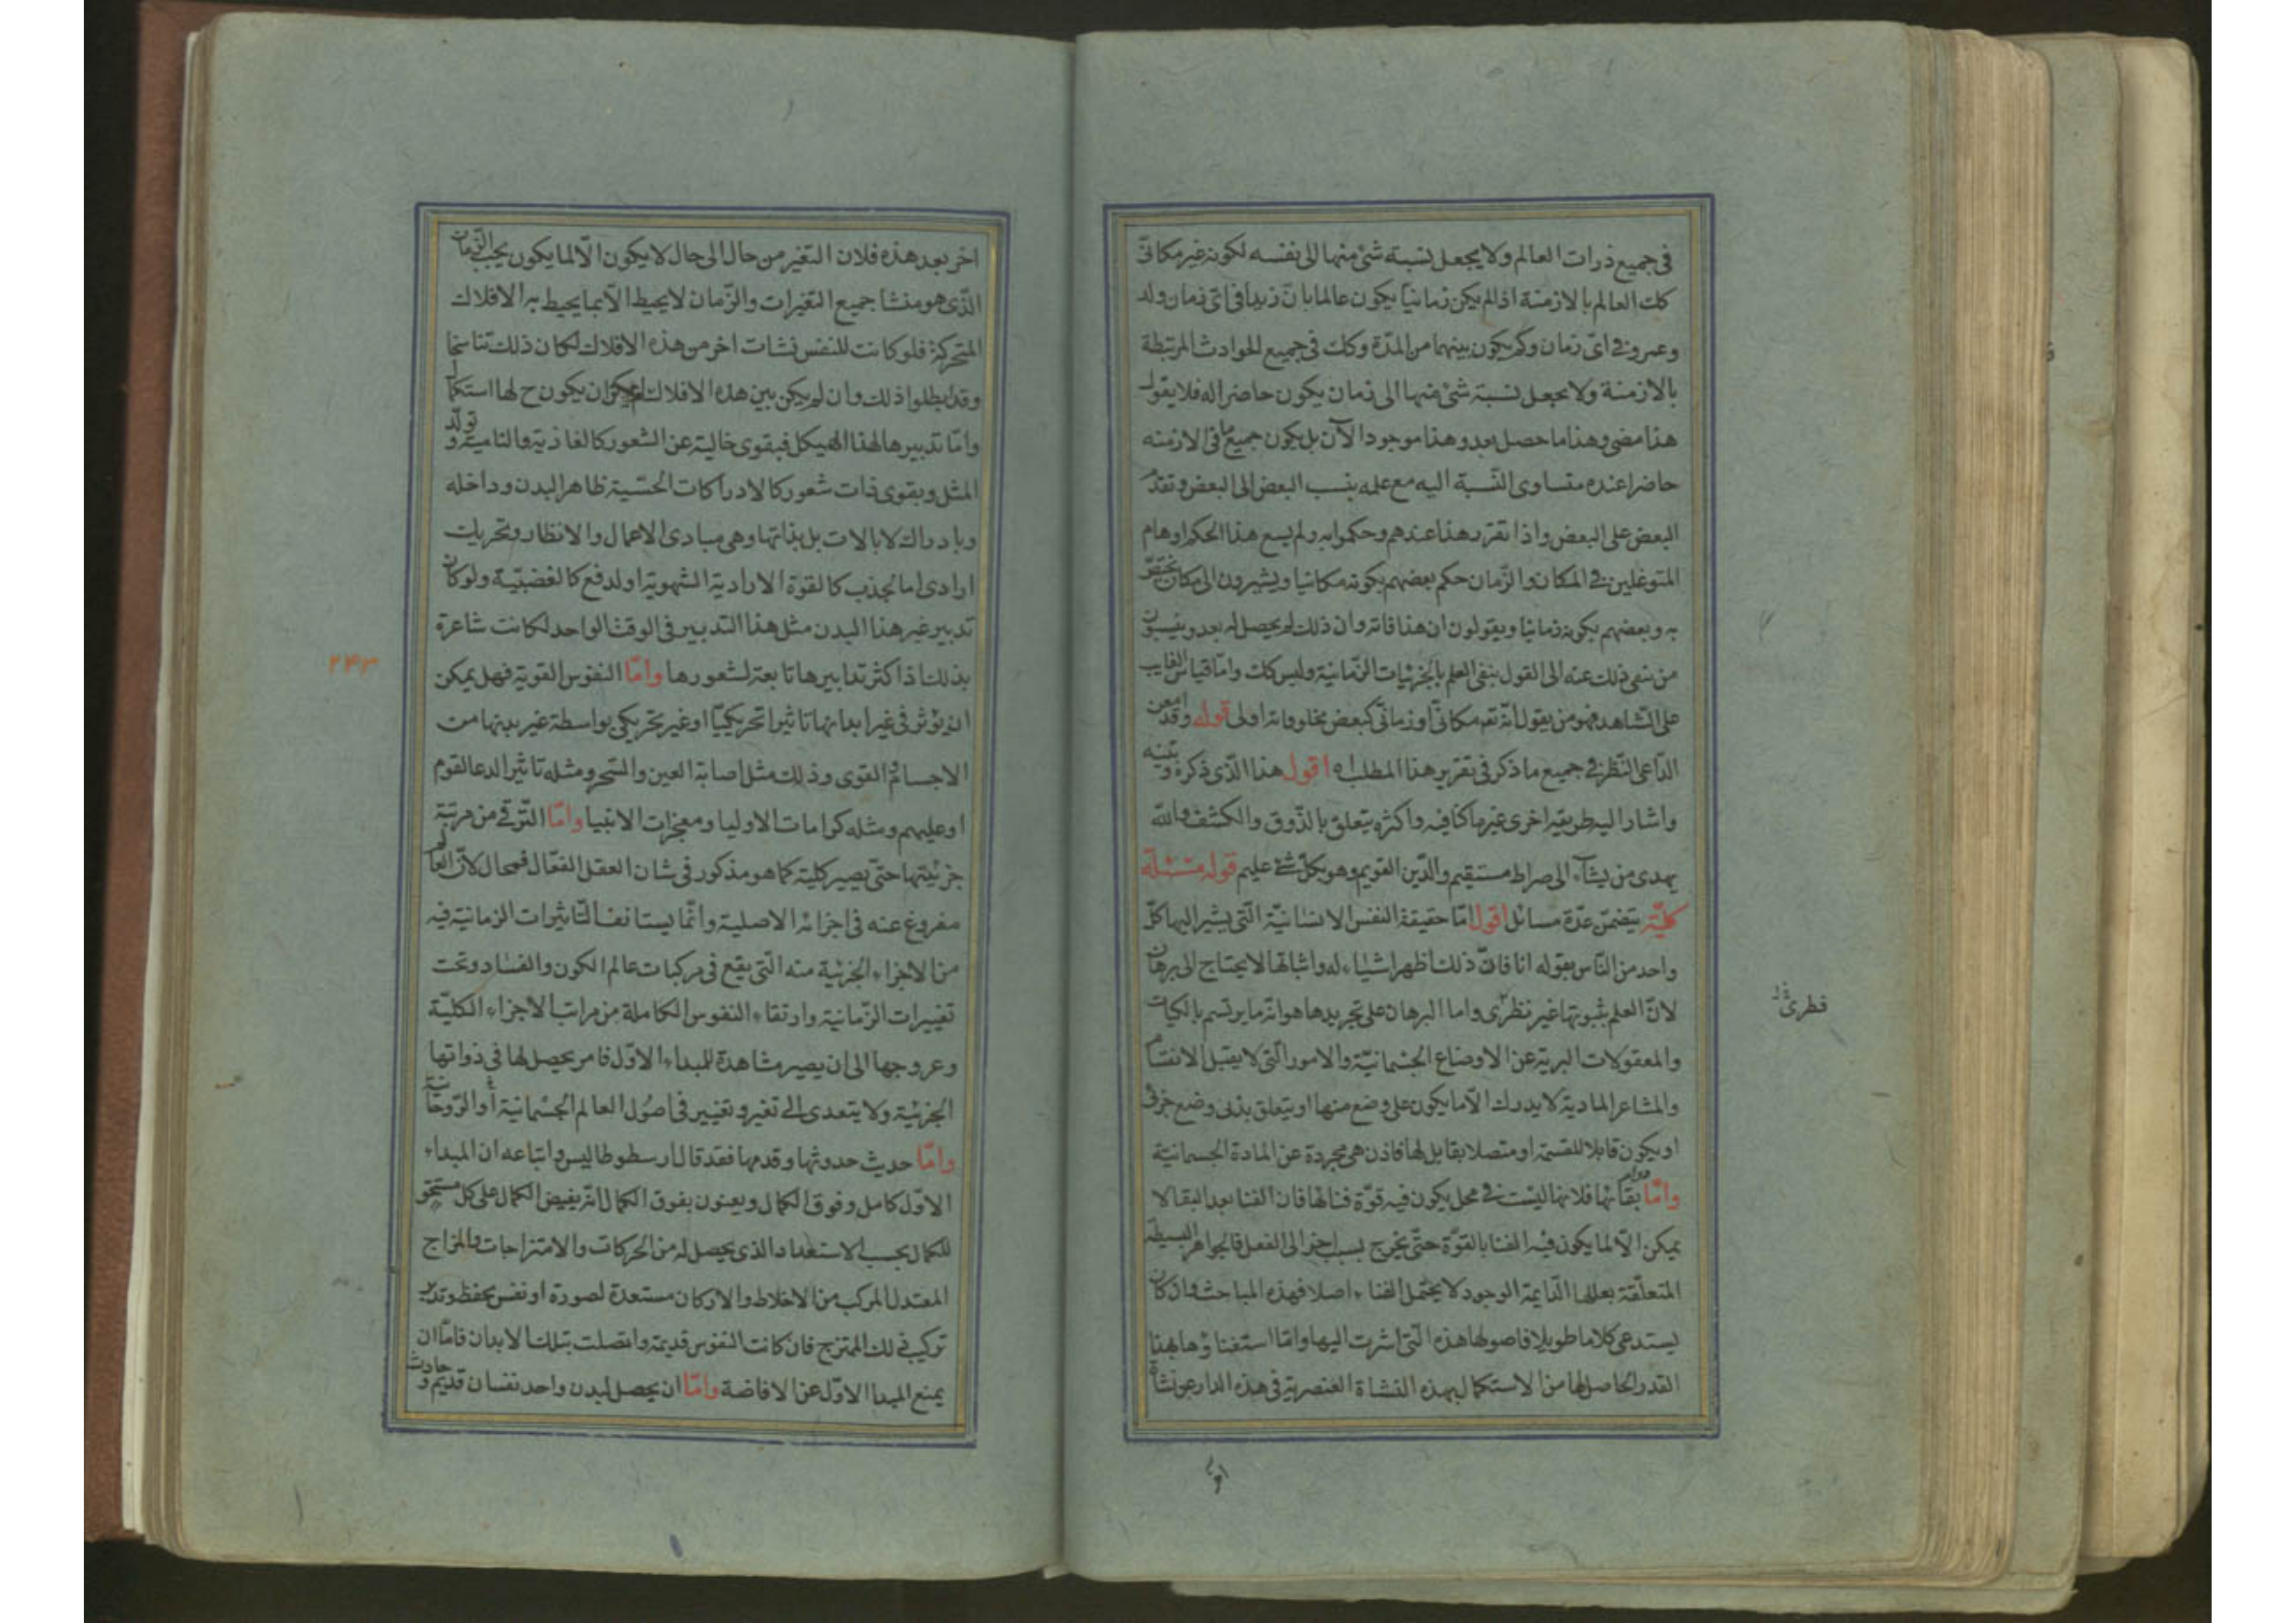 فى جميع ذرات العالم ولا يجعل نسبة شئ منها الى نفسه لكونه غير مكانىّ
كك العالم بالازمنة اذا لم يكن زمانيّا يكون عالما بانّ زيدا فى اىّ زمان ولد
وعمرو فى اىّ زمان وكم يكون بينهما من المدّة وكك فى جميع الحوادث المرتبطة
بالازمنة ولا يجعل نسبة شئ منها الى زمان يكون حاضرا له فلا يقول
هذا مضى وهذا ما حصل بعد وهذا موجود الآن بل يكون جميع ما فى الازمنه
حاضرا عنده متساوى النّسبة اليه مع علمه بنسب البعض الى البعض وتقدّم
البعض على البعض واذا تقرّر هذا عندهم وحكموا به ولم يسع هذا الحكم اوهام
المتوغلين فى المكان والزّمان حكم بعضهم بكونه مكانيا ويشيرون الى مكان يختصّ
به وبعضهم بكونه زمانيا ويقولون ان هذا فاته وان ذلك لم يحصل له بعد وينسبون
من ينفى ذلك عنه الى القول بنفى العلم بالجزئيات الزّمانية وليس كك وامّا قياس الغايب
على الشّاهد فهو من يقول انّه تع مكانىّ او زمانىّ كبعض مخلوقاته اولى قوله وقد امعن
الدّاعى النّظر فى جميع ما ذكر فى تقرير هذا المطلب اه اقول هذا الّذى ذكره وبيّنه
واشار اليه طريقه اخرى غير ما كنّا فيه واكثره يتعلّق بالذّوق والكشف والله
يهدى من يشآء الى صراط مستقيم والدّين القويم وهو بكلّ شئ عليم قوله مسئلة
كليّة يتضمّن عدّة مسائل اقول امّا حقيقة النفس الانسانيّة الّتى يشير اليها كلّ
واحد من النّاس بقوله انا فانّ ذلك اظهر اشياء له واثباتها لا يحتاج الى برهان
لانّ العلم بثبوتها غير نظرىّ واما البرهان على تجريدها هو انّه ما يرتسم بالكليات
والمعقولات البرية عن الاوضاع الجسمانيّة والامور الّتى لا يقبل الانقسام
والمشاعر المادية لا يدرك الّا ما يكون على وضع منها او يتعلق بذى وضع جزئى
او يكون قابلا للقسمة او متصلا بقابل لها فاذن هى مجردة عن المادة الجسمانية
وامّا دوام بقائها فلانها ليست فى محل يكون فيه قوّة فنائها فان الفنا بعد البقا لا
يمكن الّا لما يكون فيه الفنا بالقوّة حتّى يخرج بسبب اخر الى الفعل فالجواهر البسيطة
المتعلّقة بعللها الدّايمة الوجود لا يحتمل الفناء اصلا فهذه المباحث وان كان
يستدعى كلاما طويلا فاصولها هذه الّتى اشرت اليها وامّا استغناؤها بهذا
القدر الحاصل لها من الاستكمال بهذه النشاة العنصرية فى هذه الدار عن نشاة
فطرىّ
اخر بعد هذه فلان التّغير من حال الى حال لا يكون الّا لما يكون بحسب الزّمان
الّذى هو منشا جميع التّغيرات والزّمان لا يحيط الّا بما يحيط به الافلاك
المتحركة فلو كانت للنفس نشات اخر من هذه الافلاك لكان ذلك تناسخا
وقد ابطلوا ذلك وان لم يكن بين هذه الافلاك لم يكن ان يكون ح لها استكمال
وامّا تدبيرها لهذا الهيكل فبقوى خالية عن الشعور كالغاذية والنامية وتولّد
المثل وبقوى ذات شعور كالادراكات الحسّية ظاهر البدن وداخله
وبادراك لا بالات بل بذاتها وهى مبادى الاعمال والانظار وتحريك
ارادى اما لجذب كالقوة الارادية الشهوية او لدفع كالغضبيّة ولو كان
تدبير غير هذا البدن مثل هذا التدبير فى الوقت الواحد لكانت شاعرة
بذلك اذ اكثر تدابيرها تابعة لشعورها وامّا النفوس القوية فهل يمكن
ان يؤثر فى غير ابدانها تاثيرا تحريكيّا او غير تحريكى بواسطة غير بدنها من
الاجسام والقوى وذلك مثل اصابة العين والسّحر ومثله تاثير الدعا لقوم
او عليهم ومثله كرامات الاوليا ومعجزات الانبيا وامّا التّرقى من مرتبة
جزئيتها حتّى يصير كلية كما هو مذكور فى شان العقل الفعّال فمحال لانّ العالم
مفروغ عنه فى اجزائه الاصلية وانّما يستانف التّاثيرات الزمانية فيه
من الاجزاء الجزئية منه الّتى يقع فى مركبات عالم الكون والفساد وتحت
تغييرات الزّمانية وارتقاء النفوس الكاملة من مراتب الاجزاء الكليّة
وعروجها الى ان يصير مشاهدة للمبداء الاوّل فامر يحصل لها فى ذواتها
الجزئية ولا يتعدى الى تغير وتغيير فى اصول العالم الجسمانية او الرّوحانية
وامّا حديث حدوثها وقدمها فقد قال ارسطوطاليس واتباعه ان المبداء
الاوّل كامل وفوق الكمال ويعنون بفوق الكمال انّه يفيض الكمال على كل مستحق
للكمال بحسب الاستعداد الذى يحصل له من الحركات والامتزاجات والمزاج
المعتدل المركب من الاخلاط والاركان مستعدة لصورة او نفس يحفظ وتدبّر
تركيب ذلك الممتزج فان كانت النفوس قديمة واتصلت بتلك الابدان فامّا ان
يمنع المبدا الاوّل عن الافاضة وامّا ان يحصل لبدن واحد نفسان قديم وحادث
۲۴۳